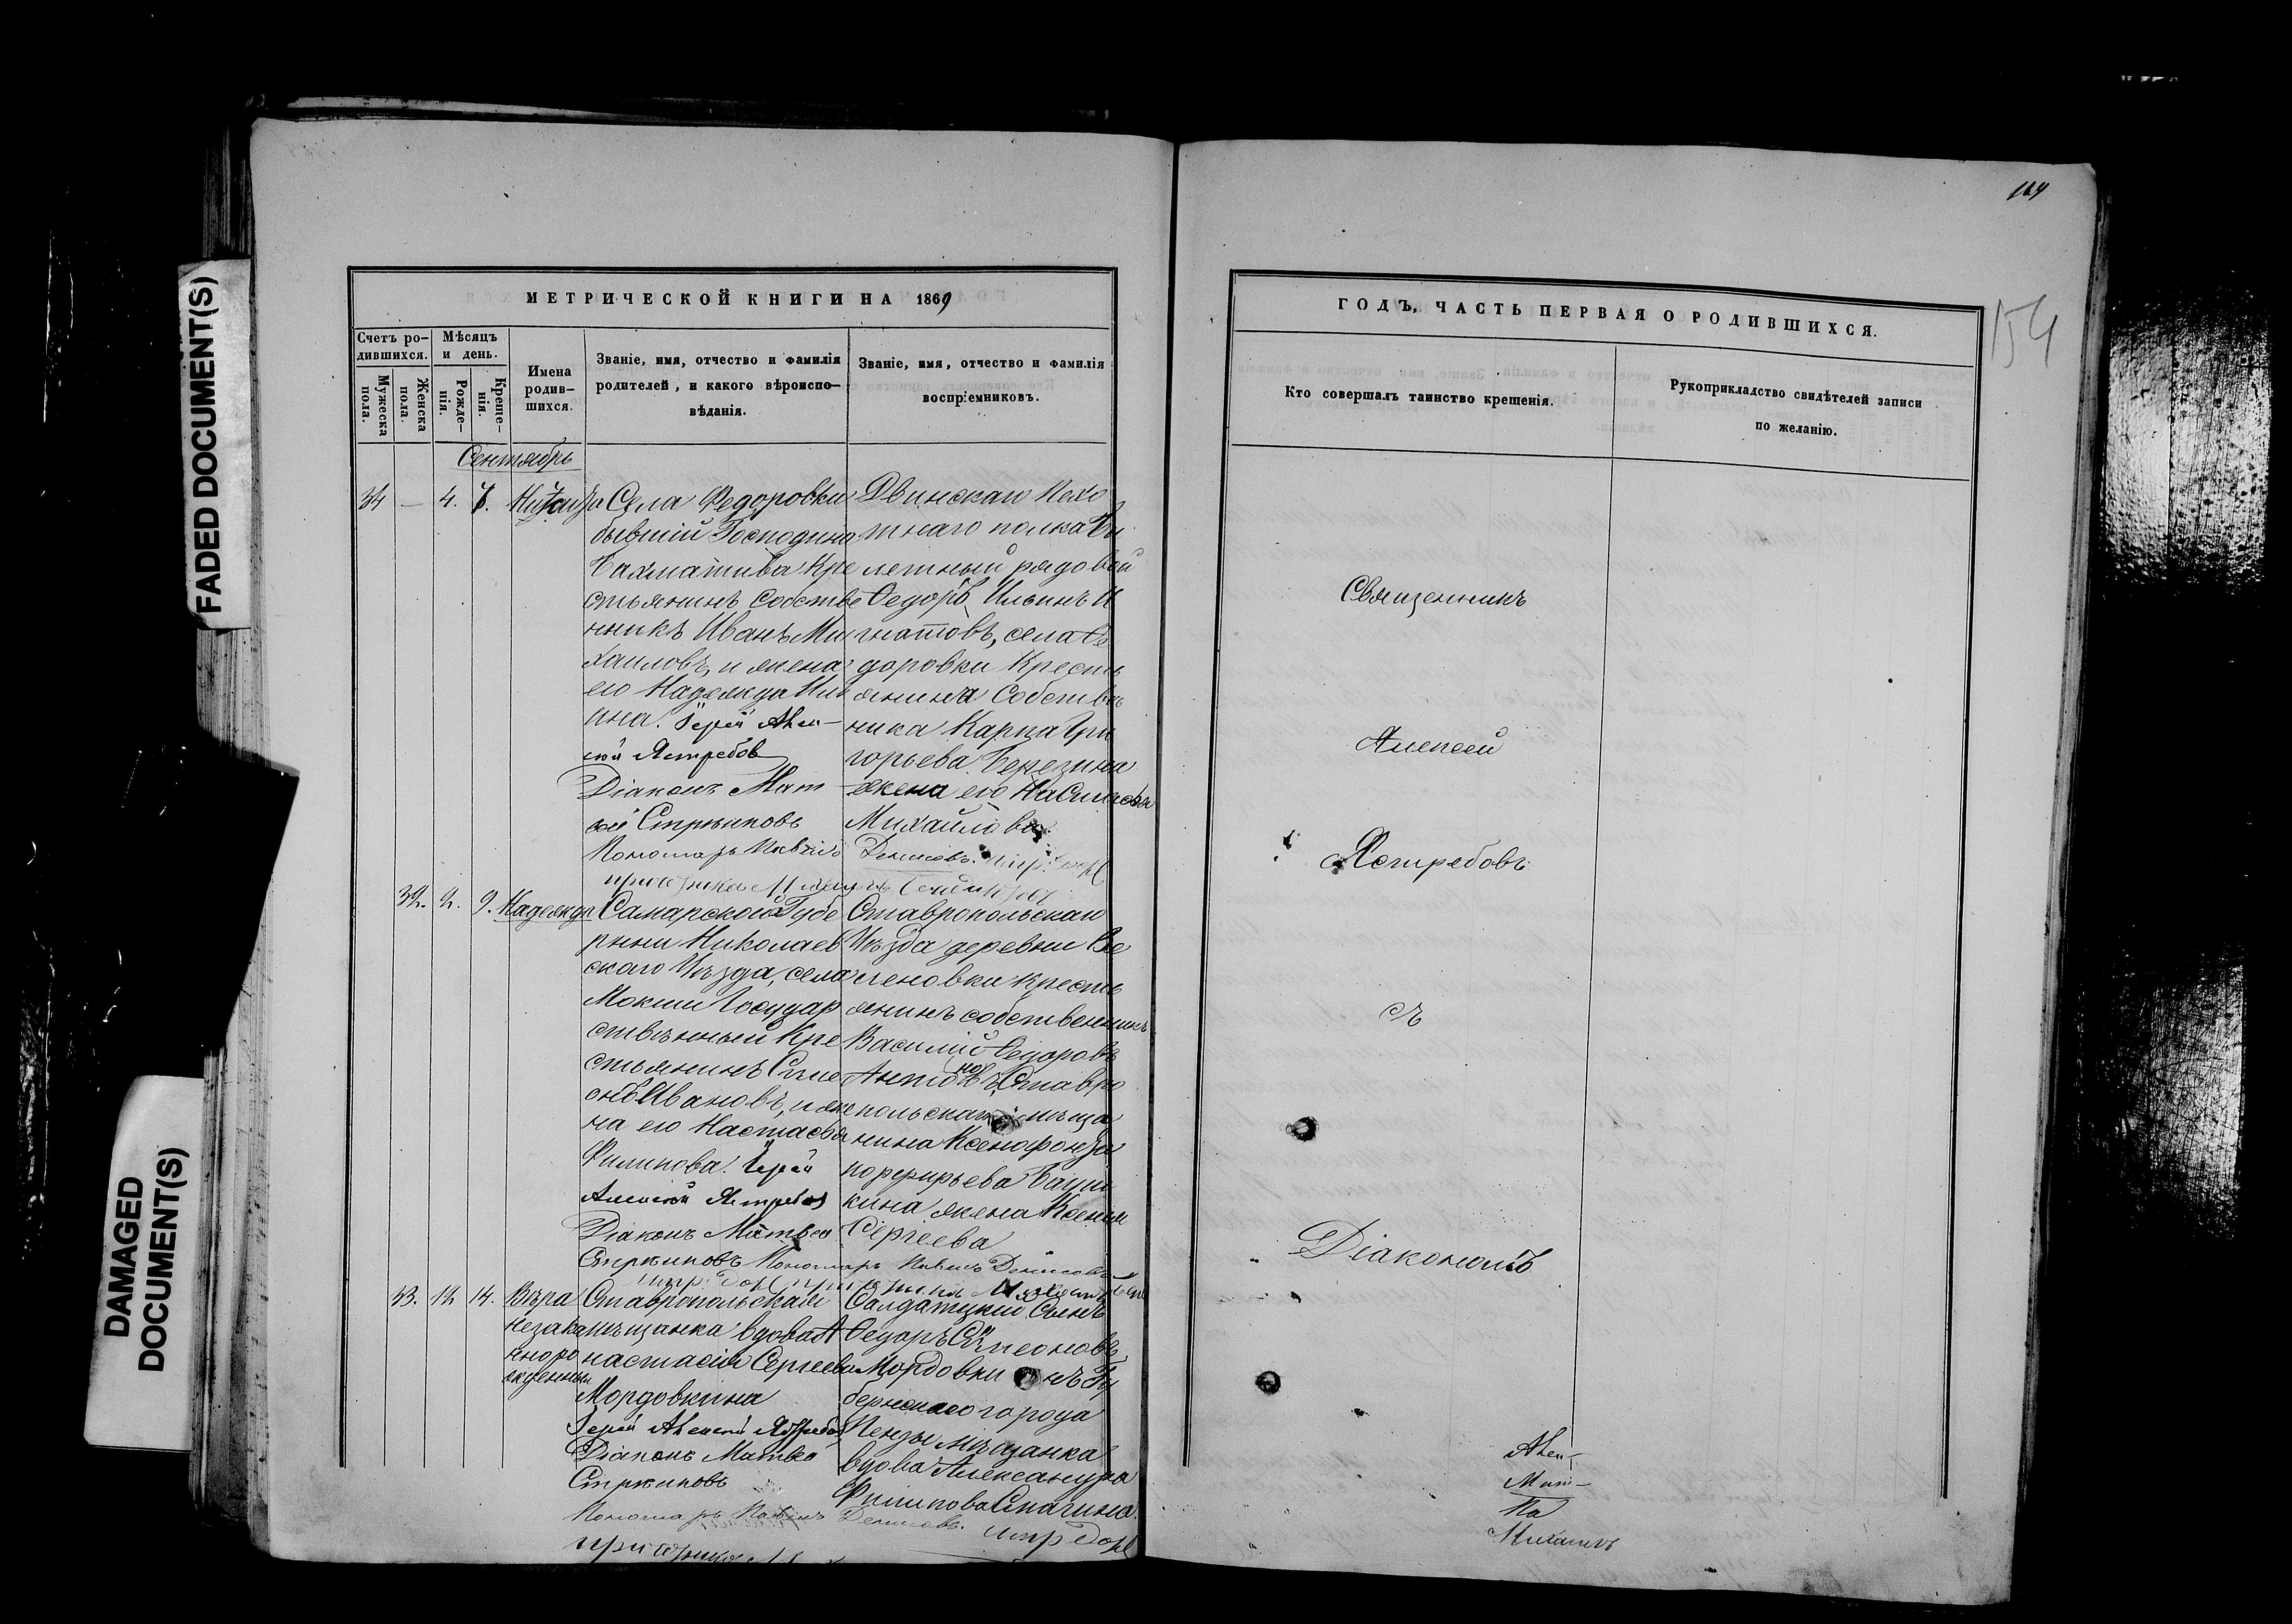 FADED DOCUMENT(S)
DAMAGED
DOCUMENT(S)
МЕТРИЧЕСКОЙ КНИГИ НА 1869
Счетъ ро-
дившихся.
Мужеска
пола.
Женска
пола.
Мѣсяцъ
и день.
Рожде-
нія.
Креще-
нія.
Имена
родив-
шихся.
Званіе, имя, отчество и фамилія
родителей, и какого вѣроиспо-
вѣданія.
Званіе, имя, отчество и фамилія
воспріемниковъ.
Сентябрь
34 — 4. 7.
Села Федоровки
бывшій Господина
Бахматива Кре
стьянинъ Собстве
нникъ Иванъ Ми
хаиловъ, и жена
его Надежда Иль
ина. Іерей Алек-
сій Ястребов
Діаконъ Мат
вей Стрѣжковъ
Пономарь Павелъ Денисовъ.
Двинскаго Пехо
тнаго полка Би
летный рядовой
Ѳедоръ Ильинъ И
гнатовъ, села Ѳе
доровки Кресть
янина Собствѣ
ника Карпа Гри
горьева Березина
жена его Настасья
Михайлова.
32. 2. 9. Надежда
Самарской Губе
рнии Николаев
ского Уѣзда, села
Мокши Государ
ствѣнный Кре
стьянинъ Симе
онъ Ивановъ, и же
на его Настасья
Филипова. Іерей
Алексій Ястребов
Діаконъ Матвей
Стрѣжковъ Пономарь Павелъ Денисовъ
Ставропольскаго
Уѣзда деревни Ве
ленов­ки Кресть
янинъ собственникъ
Василій Ѳедоровъ
Антоновъ, Ставро
польскаго мѣща
нина Ксенофонта
порфирьева Бати
кина жена Ксенія
Сергѣева
33. 12 14. Вѣра
незако
нноро
жденная
Ставропольская
мѣщанка вдова А
настасія Сергеева
Мордовкина
Іерей Алексій Ястребов
Діаконъ Матвей
Стрѣжковъ
Пономарь Павелъ Денисовъ.
Салдатский Сынъ
Ѳедоръ Симеоновъ
Мордовкинъ Гу
бернскаго города
Пензы мѣщанка
вдова Александра
Филипова Спагина.
ГОДЪ, ЧАСТЬ ПЕРВАЯ О РОДИВШИХСЯ.
Кто совершалъ таинство крещенія.
Рукоприкладство свидѣтелей записи
по желанію.
154
Священникъ
Алексей
Ястребовъ
съ
Діакономъ
Алек-
Мат-
Па
Михаилъ